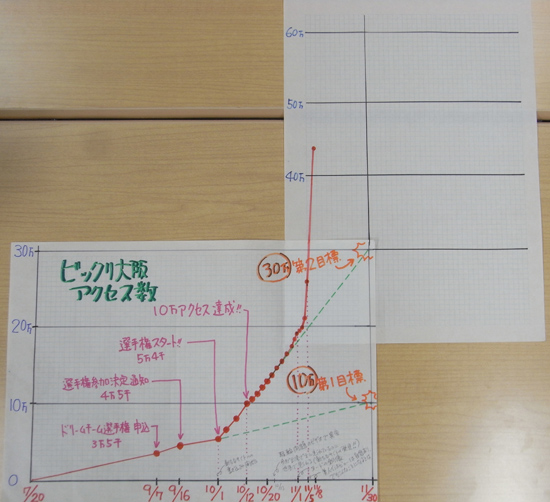 60万
50万
40万
30万
20万
10万
0
ビックリ大阪
アクセス数
30万 第2目標
10万アクセス達成!!
選手権スタート!!
5万4千
選手権参加決定通知
4万5千
ドリームチーム選手権 申込
3万5千
10万 第1目標
7/20
9/7
9/16
10/1
10/12
10/20
11/1
11/5
11/8
11/30